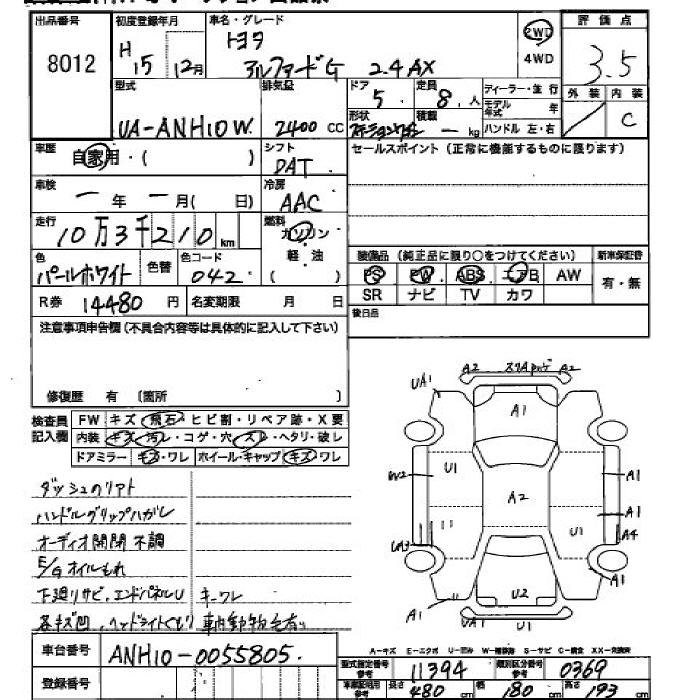 出品番号 8012
初度登録年月 H 15 12月
車名・グレード トヨタ アルファードG 2.4AX
2WD
4WD
評価点 3.5
型式 UA-ANH10W
排気量 2400 CC
ドア 5
定員 8 人
形状 ステーションワゴン
積載 — kg
ディーラー・並行
モデル年式 年
ハンドル 左・右
外装 /
内装 C
車歴 自家用・( )
シフト DAT
セールスポイント (正常に機能するものに限ります)
車検 一 年 一 月( 日)
冷房 AAC
走行 10万3千210km
燃料 ガソリン
軽油
( )
色 パールホワイト
色替
色コード 042
装備品 (純正品に限り○をつけてください)
新車保証書
PS PW ABS エアB AW
有・無
SR ナビ TV カワ
R券 14480 円
名変期限 月 日
後日品
注意事項申告欄(不具合内容等は具体的に記入して下さい)
修復歴 有 〔箇所 〕
検査員記入欄
FW キズ・飛石・ヒビ割・リペア跡・X要
内装 キズ・汚レ・コゲ・穴・スレ・ヘタリ・破レ
ドアミラー キズ・ワレ ホイール・キャップ キズ・ワレ
ダッシュのリアト
ハンドルグリップハガレ
オーディオ開閉不調
E/Gオイルもれ
下廻リサビ、エンドパネルU キーワレ
各キズ凹、ヘッドライトくもり 車内
A2 A2
UA1 A1
W2 U1 A1
A2 A1
UA3 U1 A4
U2 A1
A1 U UA1
A-キズ E-エクボ U-凹み W-補修跡 S-サビ C-腐食 XX-交換済
車台番号 ANH10-0055805
型式指定番号 参考 11394
類別区分番号 参考 0369
登録番号
車庫証明用 参考
長さ 480 cm
幅 180 cm
高さ 193 cm